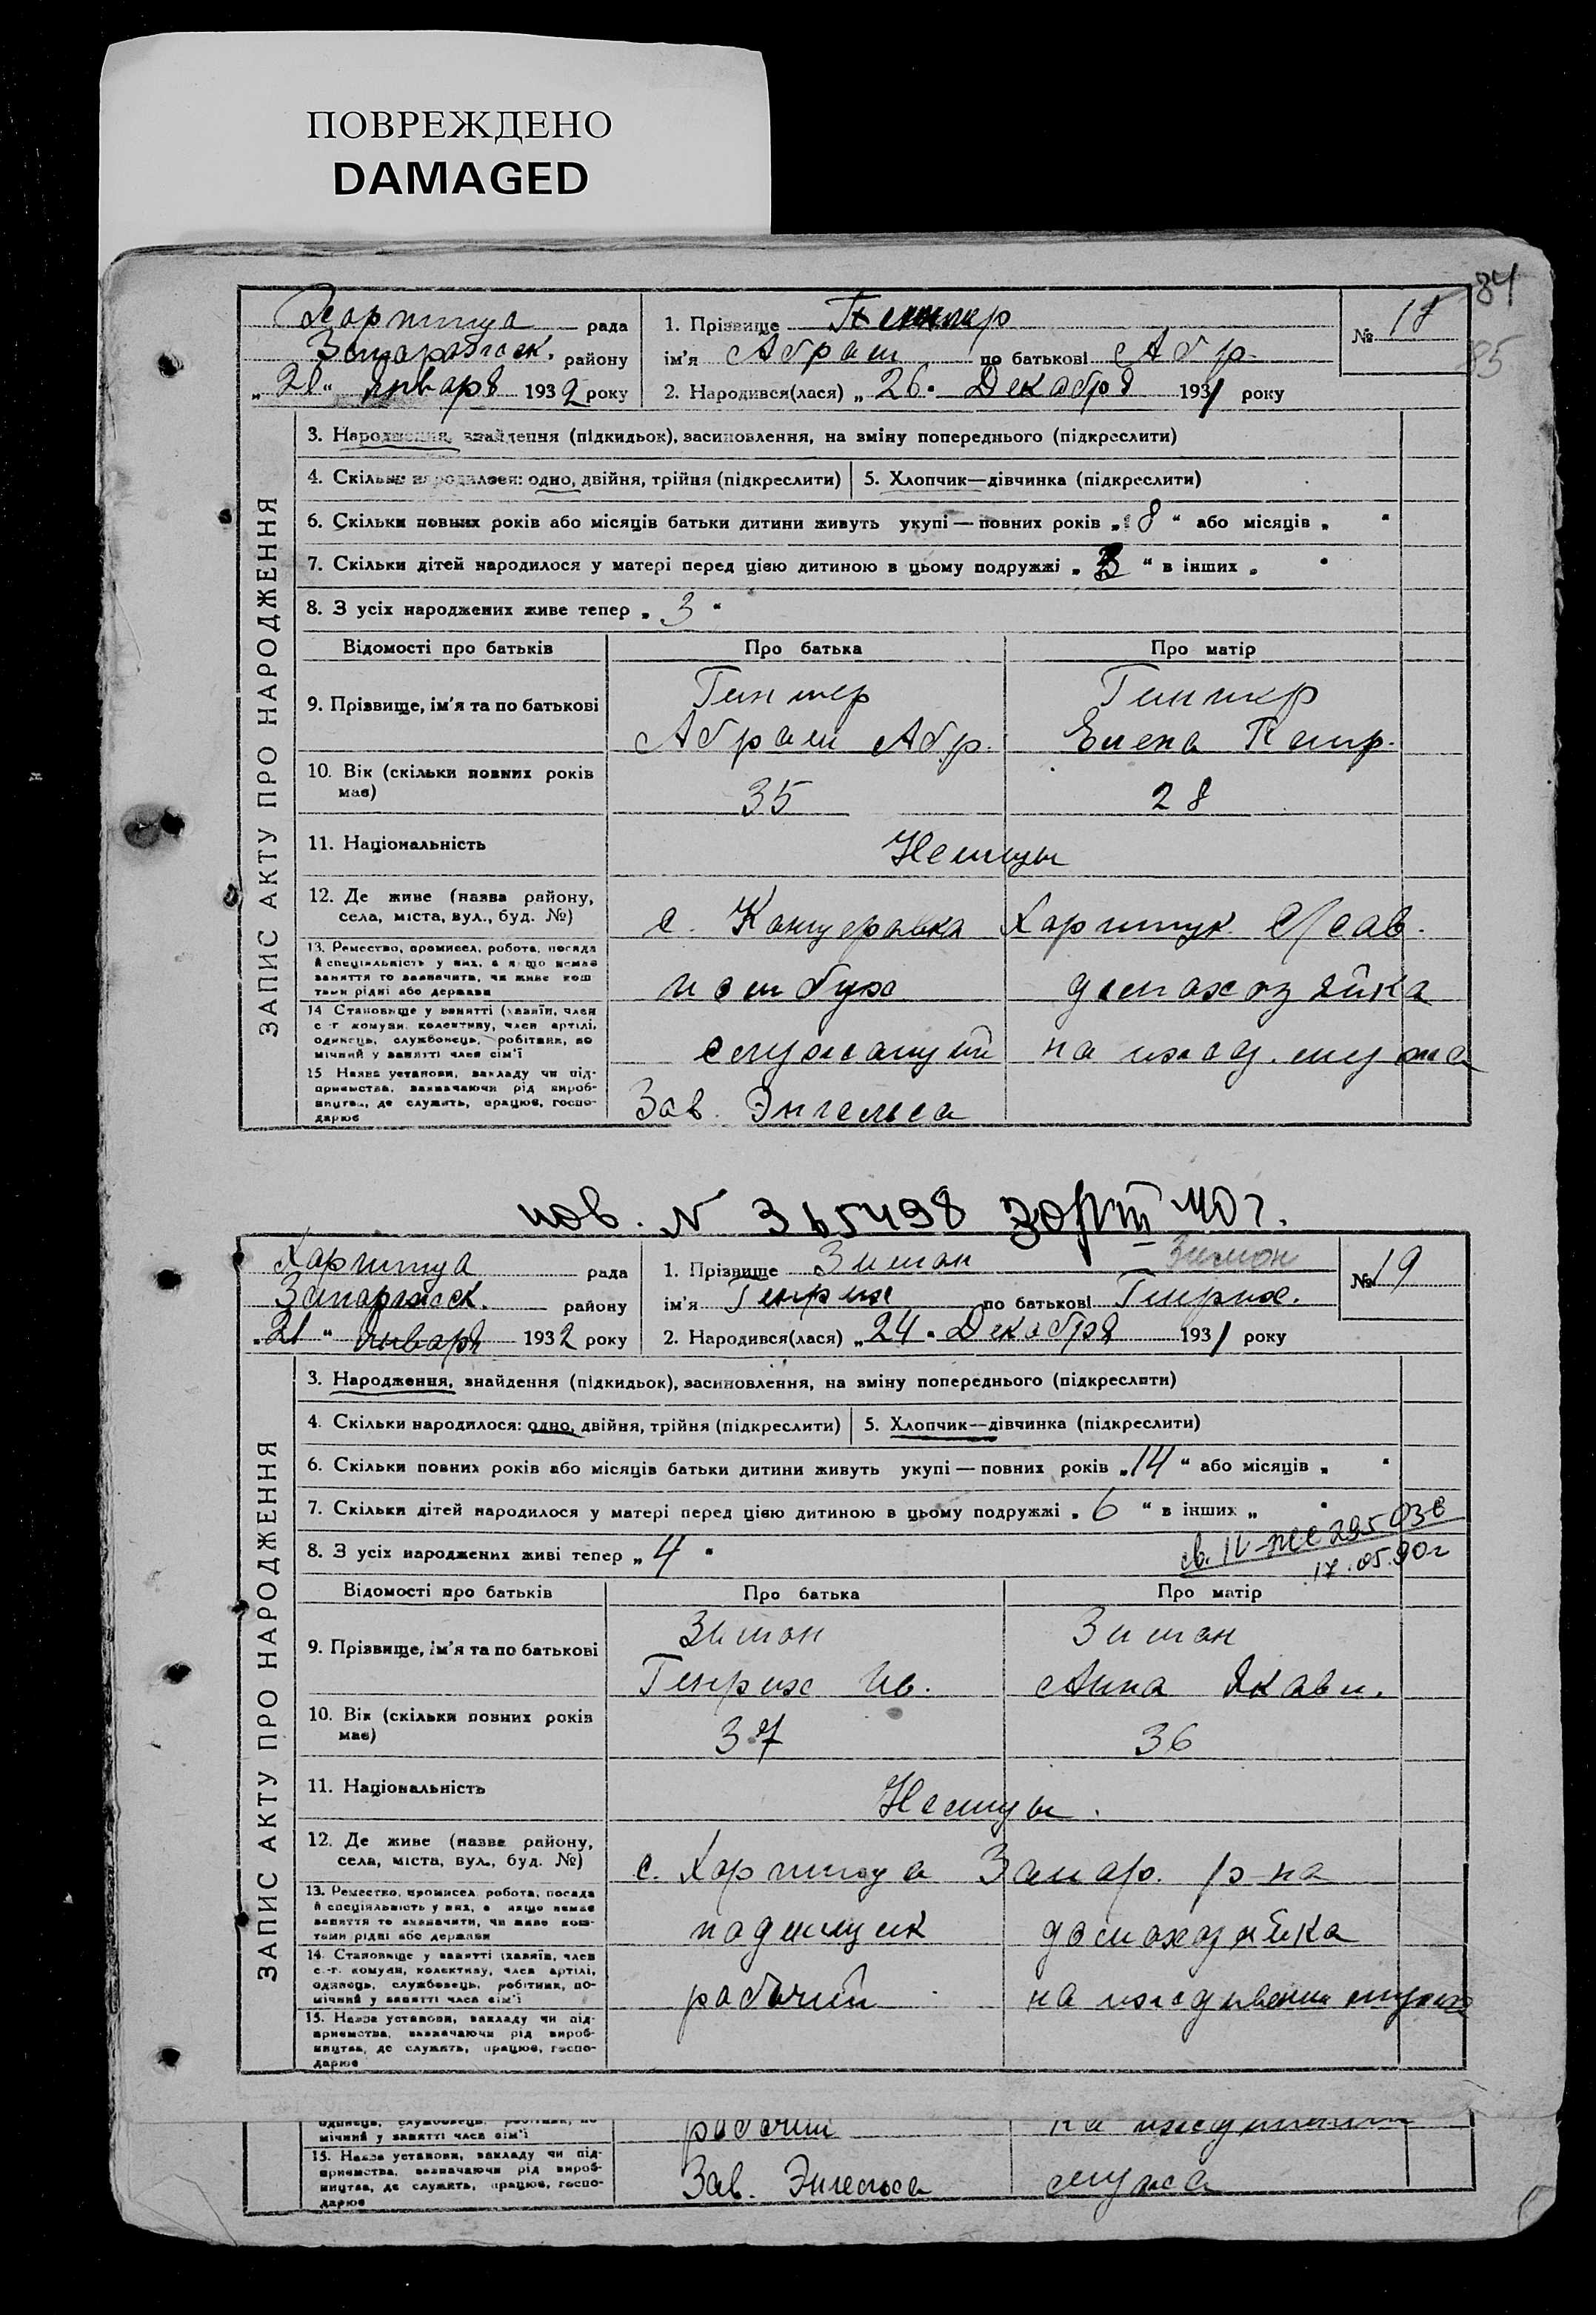 ПОВРЕЖДЕНО
DAMAGED
84
85
Хортица рада
Запорожск. району
„21“ января 1932 року
1. Прізвище
ім'я Абрам по батькові Абр.
2. Народився(лася) „26“ Декабря 1931 року
№ 18
ЗАПИС АКТУ ПРО НАРОДЖЕННЯ
3. Народження, знайдення (підкидьок), засиновлення, на зміну попереднього (підкреслити)
4. Скільки народилося: одно, двійня, трійня (підкреслити)
5. Хлопчик—дівчинка (підкреслити)
6. Скільки повних років або місяців батьки дитини живуть укупі — повних років „8“ або місяців „ “
7. Скільки дітей народилося у матері перед цією дитиною в цьому подружжі „3“ в інших „ “
8. З усіх народжених живе тепер „3“
Відомості про батьків Про батька Про матір
9. Прізвище, ім'я та по батькові
Гинтер Гинтер
Абрам Абр. Елена Петр.
10. Вік (скільки повних років має)
35 28
11. Національність
Немцы
12. Де живе (назва району, села, міста, вул., буд. №)
с. Канцеровка Хортицк. с/сов.
13. Ремество, промисел, робота, посада й спеціяльність у них, а якщо немає заняття то зазначити, чи живе коштами рідні або держави
помбух домохозяйка
14 Становище у занятті (хазяїн, член с.-г. комуни, колективу, член артілі, одинець, службовець, робітник, помічний у занятті член сім'ї
служащий на ижд. мужа
15 Назва установи, закладу чи підприємства, зазначаючи рід виробництва, де служить, працює, господарює
Зав. Энгельса
пов. N 365498 30/VIII 40 г.
Хортица рада
Запорожск. району
„21“ января 1932 року
1. Прізвище Зимон Зимон
ім'я Генрих по батькові Генрих.
2. Народився(лася) „24“ Декабря 1931 року
№ 19
ЗАПИС АКТУ ПРО НАРОДЖЕННЯ
3. Народження, знайдення (підкидьок), засиновлення, на зміну попереднього (підкреслити)
4. Скільки народилося: одно, двійня, трійня (підкреслити)
5. Хлопчик—дівчинка (підкреслити)
6. Скільки повних років або місяців батьки дитини живуть укупі — повних років „14“ або місяців „ “
7. Скільки дітей народилося у матері перед цією дитиною в цьому подружжі „6“ в інших „ “
8. З усіх народжених живі тепер „4“
св. IV-ЖС 295 038
17.05.90 г
Відомості про батьків Про батька Про матір
9. Прізвище, ім'я та по батькові
Зимон Зимон
Генрих Ив. Анна Яковл.
10. Вік (скільки повних років має)
37 36
11. Національність
Немцы.
12. Де живе (назва району, села, міста, вул., буд. №)
с. Хортица Запор. р-на
13. Ремество, промисел, робота, посада й спеціяльність у них, а якщо немає заняття то зазначити, чи живе коштами рідні або держави
поденщик домохозяйка
14. Становище у занятті (хазяїн, член с.-г. комуни, колективу, член артілі, одинець, службовець, робітник, помічний у занятті член сім'ї
рабочий на иждивении мужа
15. Назва установи, закладу чи підприємства, зазначаючи рід виробництва, де служить, працює, господарює
одинець, службовець, робітник, по
мічний у занятті член сім'ї
рабочий на иждивении
15. Назва установи, закладу чи підприємства, зазначаючи рід виробництва, де служить, працює, господарює
Зав. Энгельса мужа